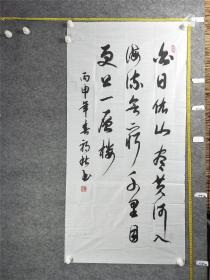 白日依山尽黄河入
海流欲穷千里目
更上一层楼
丙申年春